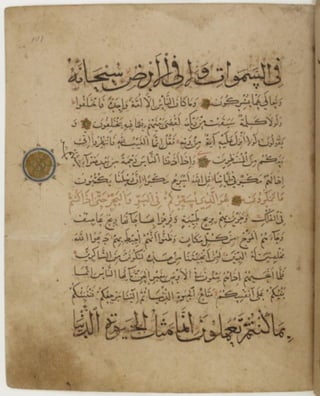 في السموات ولا في الأرض سبحانه
وتعالى عما يشركون وما كان الناس إلا أمة واحدة فاختلفوا
ولولا كلمة سبقت من ربك لقضي بينهم فيما فيه يختلفون و
يقولون لولا أنزل عليه آية من ربه فقل إنما الغيب لله فانتظروا إني
معكم من المنتظرين وإذا أذقنا الناس رحمة من بعد ضراء مستهم
إذا لهم مكر في آياتنا قل الله أسرع مكرا إن رسلنا يكتبون
ما تمكرون هو الذي يسيركم في البر والبحر حتى إذا كنتم
في الفلك وجرين بهم بريح طيبة وفرحوا بها جاءتها ريح عاصف
وجاءهم الموج من كل مكان وظنوا أنهم أحيط بهم دعوا الله
مخلصين له الدين لئن أنجيتنا من هذه لنكونن من الشاكرين
فلما أنجاهم إذا هم يبغون في الأرض بغير الحق يا أيها الناس إنما
بغيكم على أنفسكم متاع الحيوة الدنيا ثم إلينا مرجعكم فننبئكم
بما كنتم تعملون إنما مثل الحيوة الدنيا